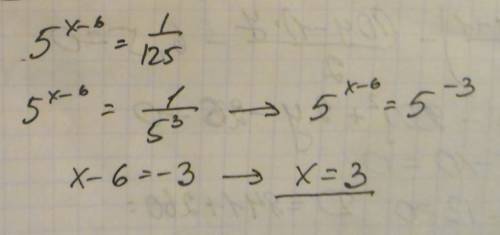 5^{x-6} = 1/125
5^{x-6} = 1/5^3 → 5^{x-6} = 5^{-3}
x-6 = -3 → x = 3